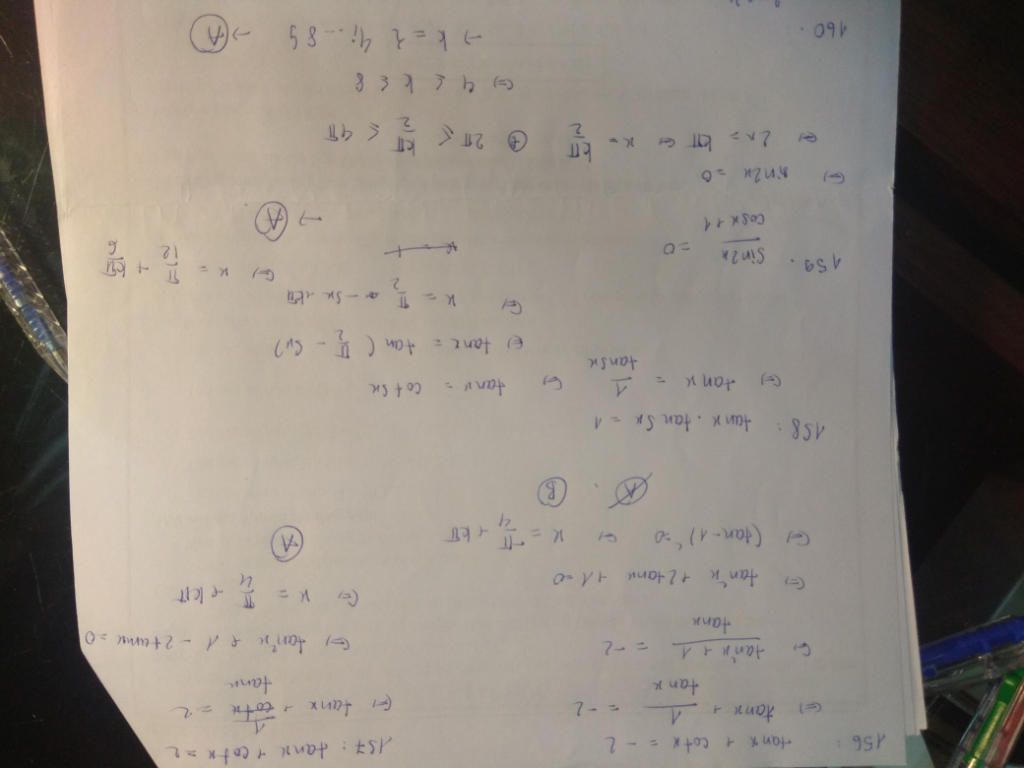 156: tanx + cotx = -2
⇔ tanx + 1/tanx = -2
⇔ (tan²x + 1)/tanx = -2
⇔ tan²x + 2tanx + 1 = 0
⇔ (tan-1)² = 0 ⇔ x = -π/4 + kπ
A . B
157: tanx + cotx = 2
⇔ tanx + 1/tanx = 2
⇔ tan²x + 1 - 2tanx = 0
⇔ x = π/4 + kπ
A
158: tanx . tan5x = 1
⇔ tanx = 1/tan5x ⇔ tanx = cot5x
⇔ tanx = tan(π/2 - 5x)
⇔ x = π/2 - 5x + kπ
⇔ x = π/12 + kπ/6
→ A
159. sin2x/(cosx+1) = 0
⇔ sin2x = 0
⇔ 2x = kπ ⇔ x = kπ/2 2π ≤ kπ/2 ≤ 4π
⇔ 4 ≤ k ≤ 8
→ k = 24; ... 85 → A
160.